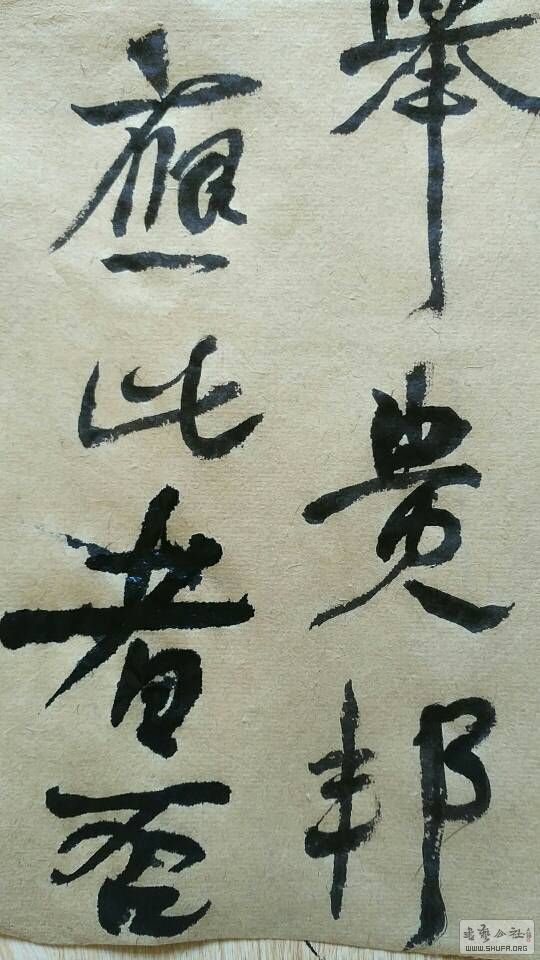 舉貴邦
應此者否
书艺公社
WWW.SHUFA.ORG